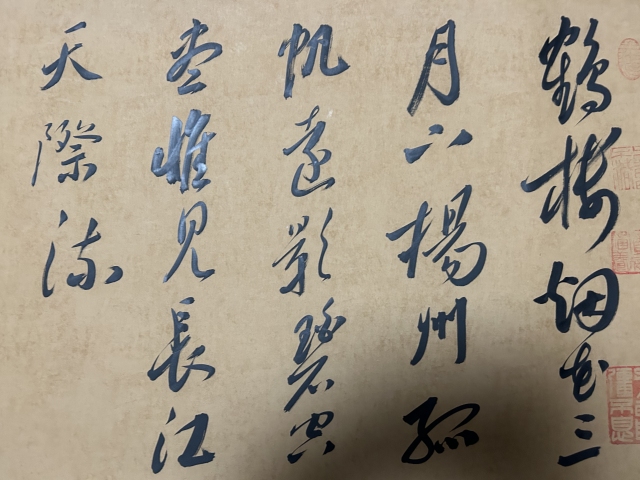 鶴楼烟花三
月下楊州孤
帆遠影碧空
尽惟見長江
天際流